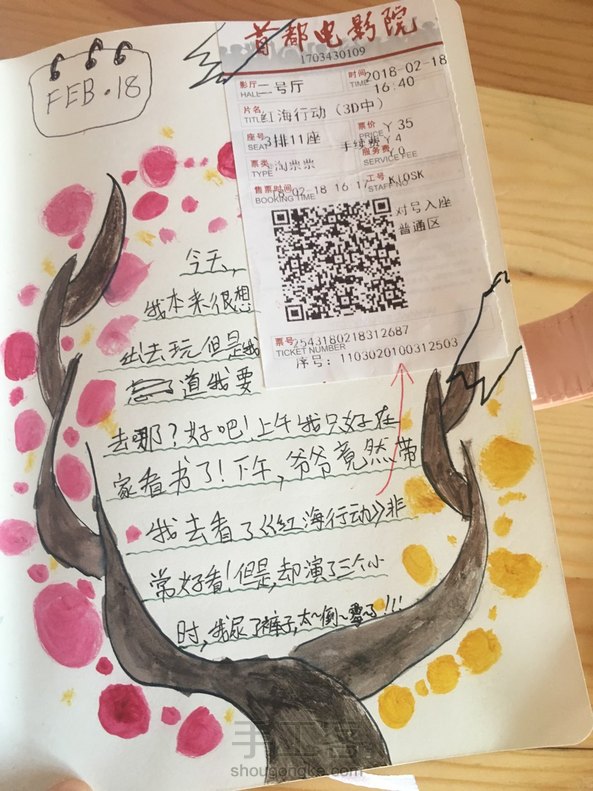 FEB.18
首都电影院
1703430109
影厅 二号厅 时间 2018-02-18
HALL TIME 16:40
片名 红海行动(3D中)
TITLE
座号 3排11座 票价 ￥35
SEAT PRICE
手续费￥4
票类 淘票票 服务费 ￥0
TYPE SERVICE FEE
售票时间 18-02-18 16 17 工号 KIOSK
BOOKING TIME STAFF NO
对号入座
普通区
票号 2543180218312687
TICKET NUMBER
序号：1103020100312503
今天，
我本来很想
出去玩但是我
道我要
去哪？好吧！上午我只好在
家看书了！下午，爷爷竟然带
我去看了《红海行动》非
常好看！但是，却演了三个小
时，我尿了裤子，太~倒~霉~了！！！
手工客
shougongke.com